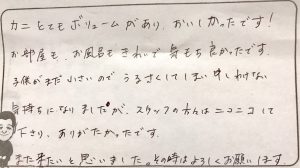 カニとてもボリュームがあり、おいしかったです!
お部屋も、お風呂もきれいで気もち良かったです。
子供がまだ小さいのでうるさくしてしまい申しわけない
気持ちになりましたが、スタッフの方々はニコニコして
下さり、ありがたかったです。
また来たいと思いました。その時はよろしくお願いします